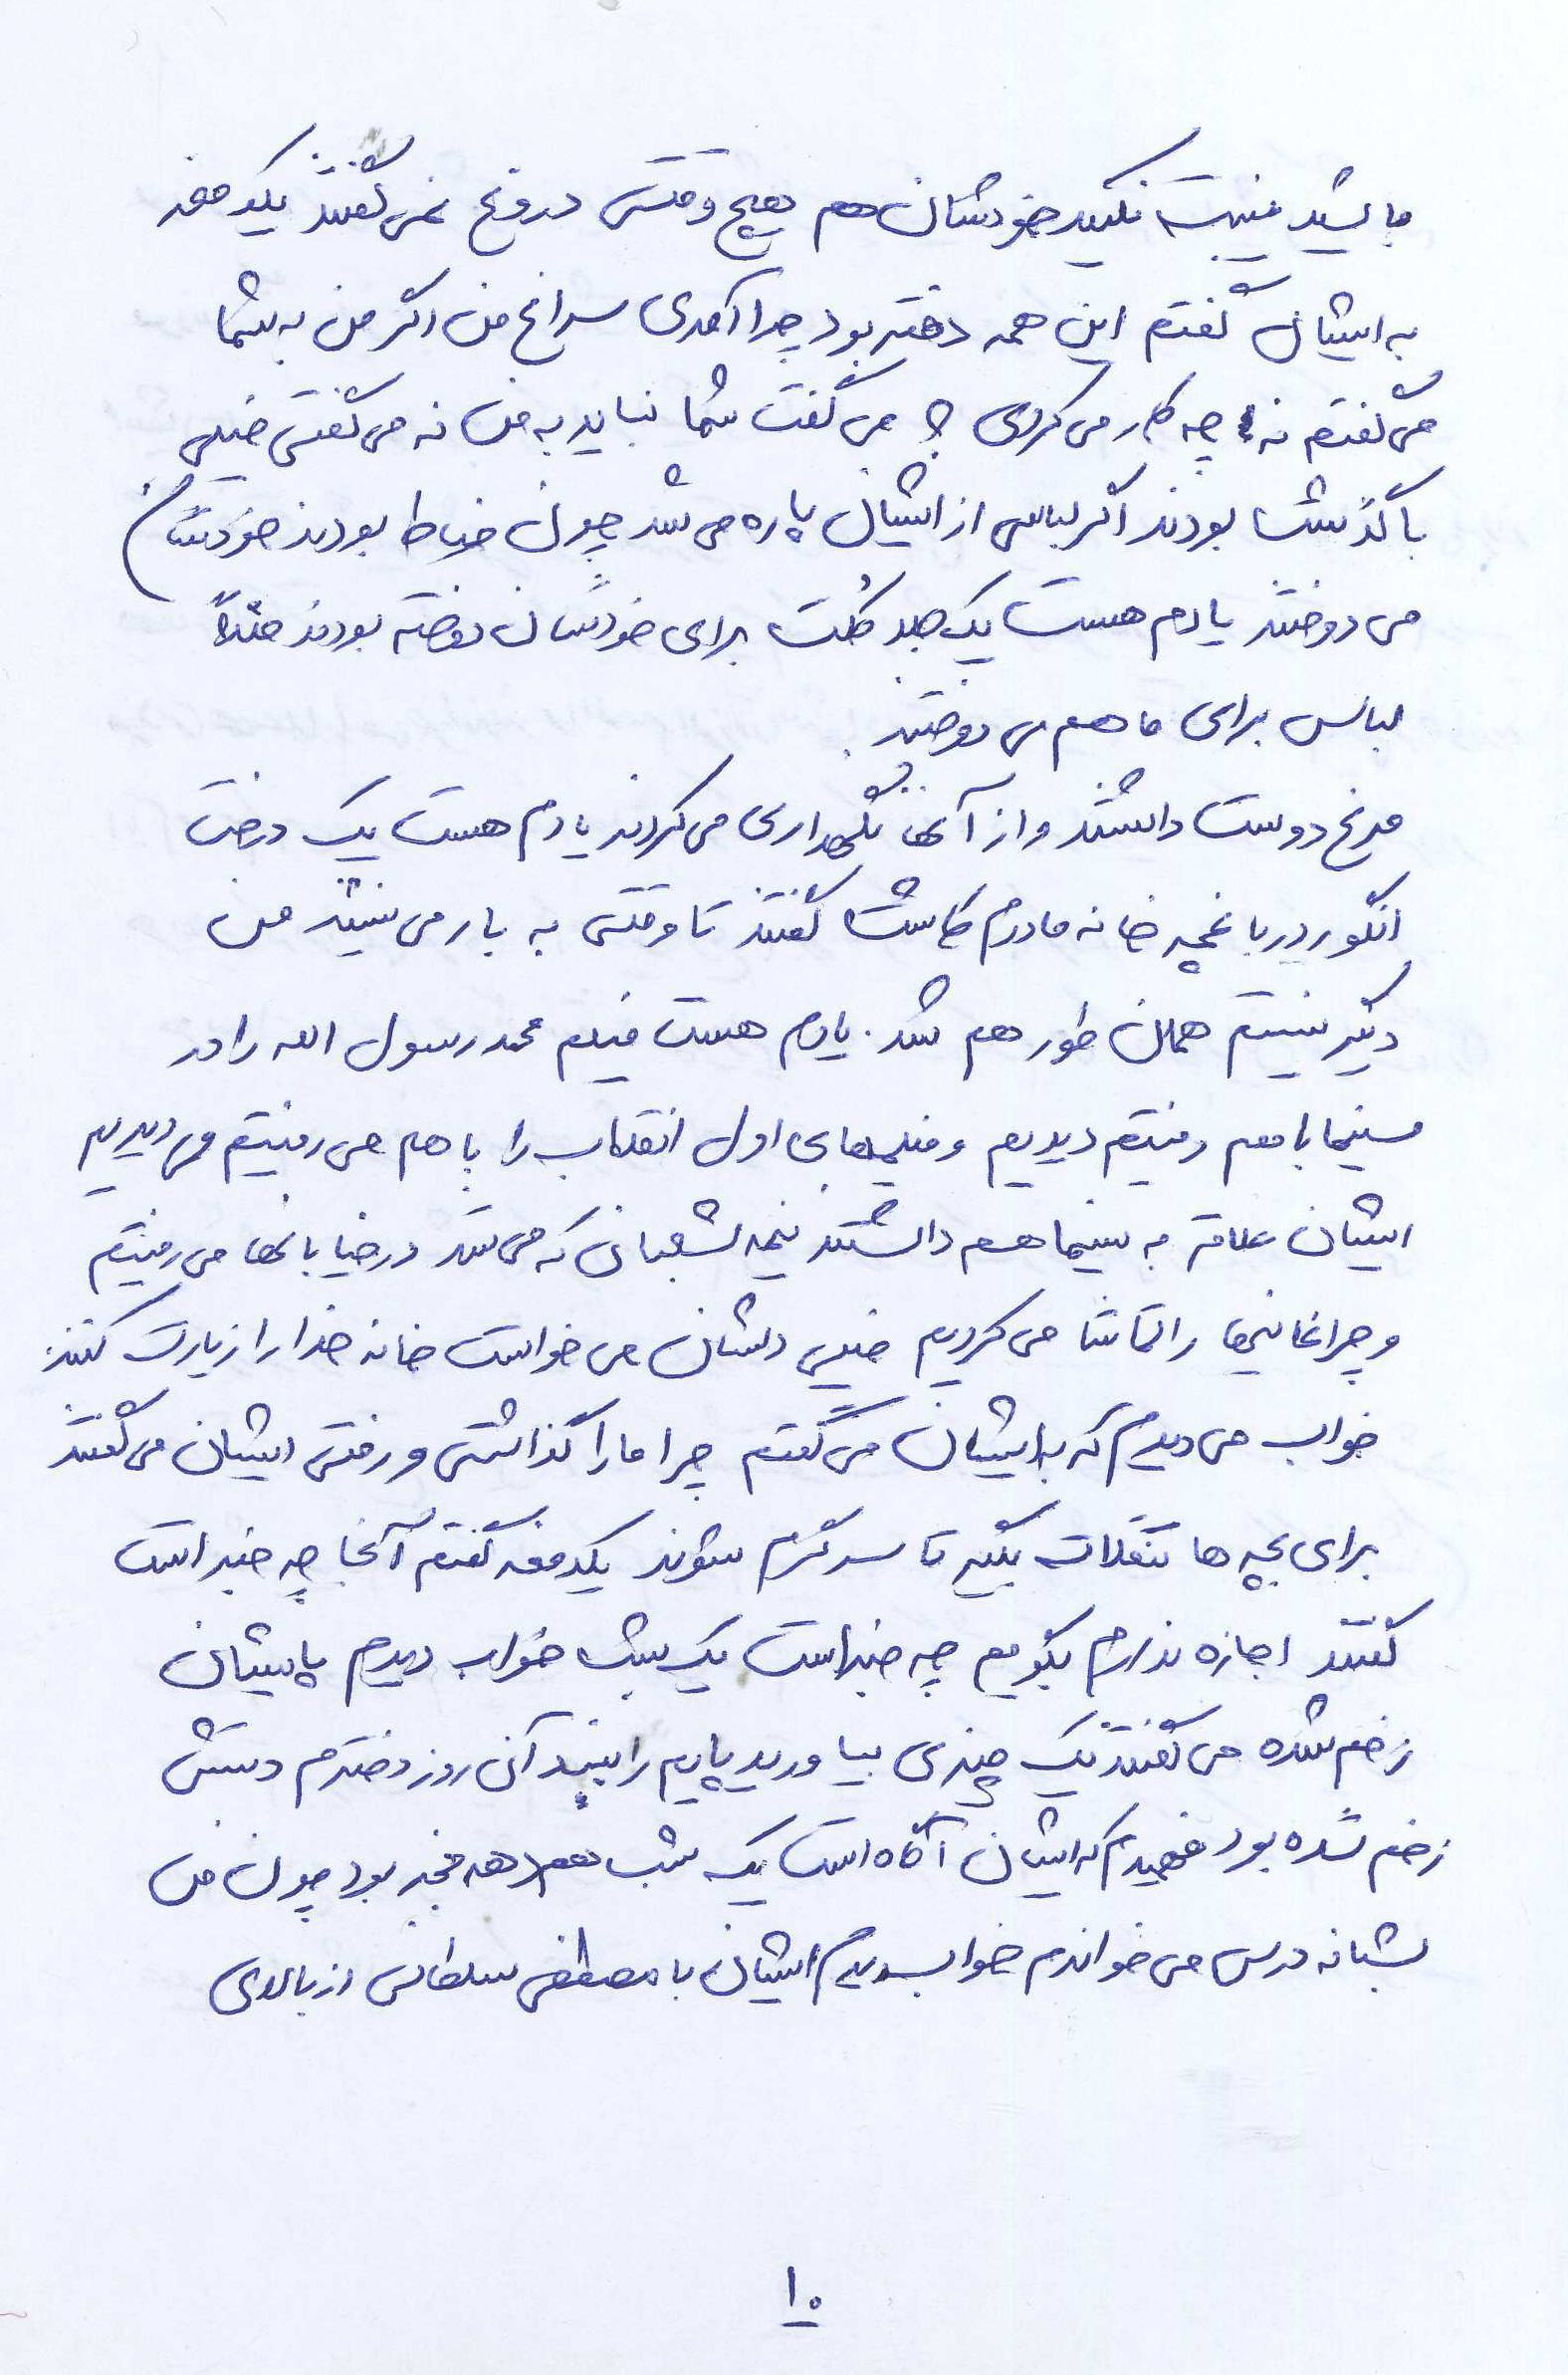 باشید غیبت نکنید خودشان هم هیچ وقت دروغ نمی گفتند یکدفعه
به ایشان گفتم این همه دختر بود چرا آمدی سراغ من اگر من به شما
می گفتم نه چه کار می کردی ؟ می گفت شما نباید به من نه می گفتی خیلی
با گذشت بودند اگر لباسی از ایشان پاره می شد چون خیاط بودند خودشان
می دوختند یادم هست یک جلد کلت برای خودشان دوخته بودند مثلاً
لباس برای ما هم می دوختند.
مرغ دوست داشتند و از آنها نگهداری می کردند یادم هست یک درخت
انگور در باغچه خانه مادرم کاشت گفتند تا وقتی به بار می نشیند من
دیگر نیستم همان طور هم شد. یادم هست فیلم محمد رسول الله را در
سینما با هم رفتیم دیدیم و فیلمهای اول انقلاب را با هم می رفتیم می دیدیم
ایشان علاقه به سینما هم داشتند نیمه شعبان که می شد در خیابانها می رفتیم
و چراغانیها را تماشا می کردیم خیلی دلشان می خواست خانه خدا را زیارت کنند.
خواب می دیدم که به ایشان می گفتم چرا ما را گذاشتی و رفتی ایشان می گفتند
برای بچه ها تنقلات بگیر تا سرگرم شوند یکدفعه گفتم آنجا چه خبر است
گفتند اجازه ندارم بگویم چه خبر است یک شب خواب دیدم پایشان
زخم شده می گفتند یک چیزی بیاورید پایم را ببندید آن روز دخترم دستش
زخم شده بود فهمیدم که ایشان آگاه است یک شب هم دهه فجر بود چون من
شبانه درس می خواندم خواب دیدم ایشان با مصطفی سلطانی از بالای
۱۰